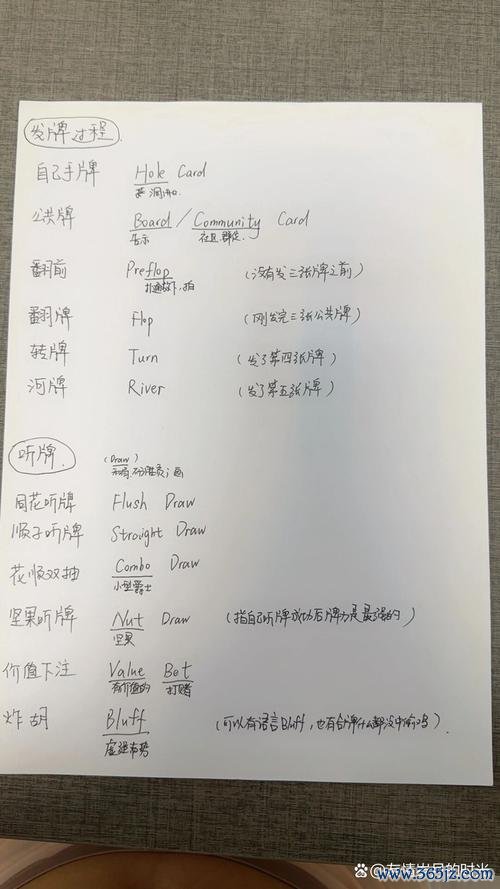 发牌过程.
自己手牌 Hole Card
洞,洞口.
公共牌 Board / Community Card
告示 社区,群众.
翻前 Preflop (没有发三张牌之前)
扑通放下,拍
翻牌 Flop (刚发完三张公共牌)
转牌 Turn (发了第四张牌)
河牌 River (发了第五张牌)
听牌. (Draw)
平局,不分胜负;画
同花听牌 Flush Draw
顺子听牌 Straight Draw
花顺双抽 Combo Draw
小型爵士
坚果听牌 Nut Draw (指自己听牌成功后牌力是最强的)
坚果
价值下注 Value Bet
有价值的 打赌
炸胡 Bluff (可以有语言Bluff,也有合牌什么都没中偷鸡).
虚张声势
@友情岁月的时光
www.365jz.com